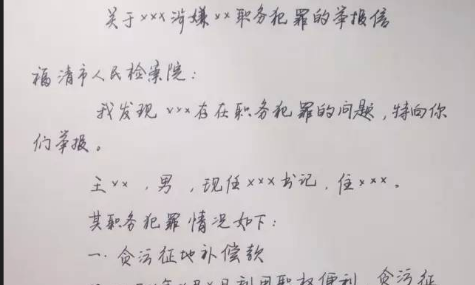 关于×××涉嫌××职务犯罪的举报信
福清市人民检察院：
我发现×××存在职务犯罪的问题，特向你
们举报。
王××，男，现任×××书记，住×××。
其职务犯罪情况如下：
一·贪污征地补偿款
利用职权便利，贪污征